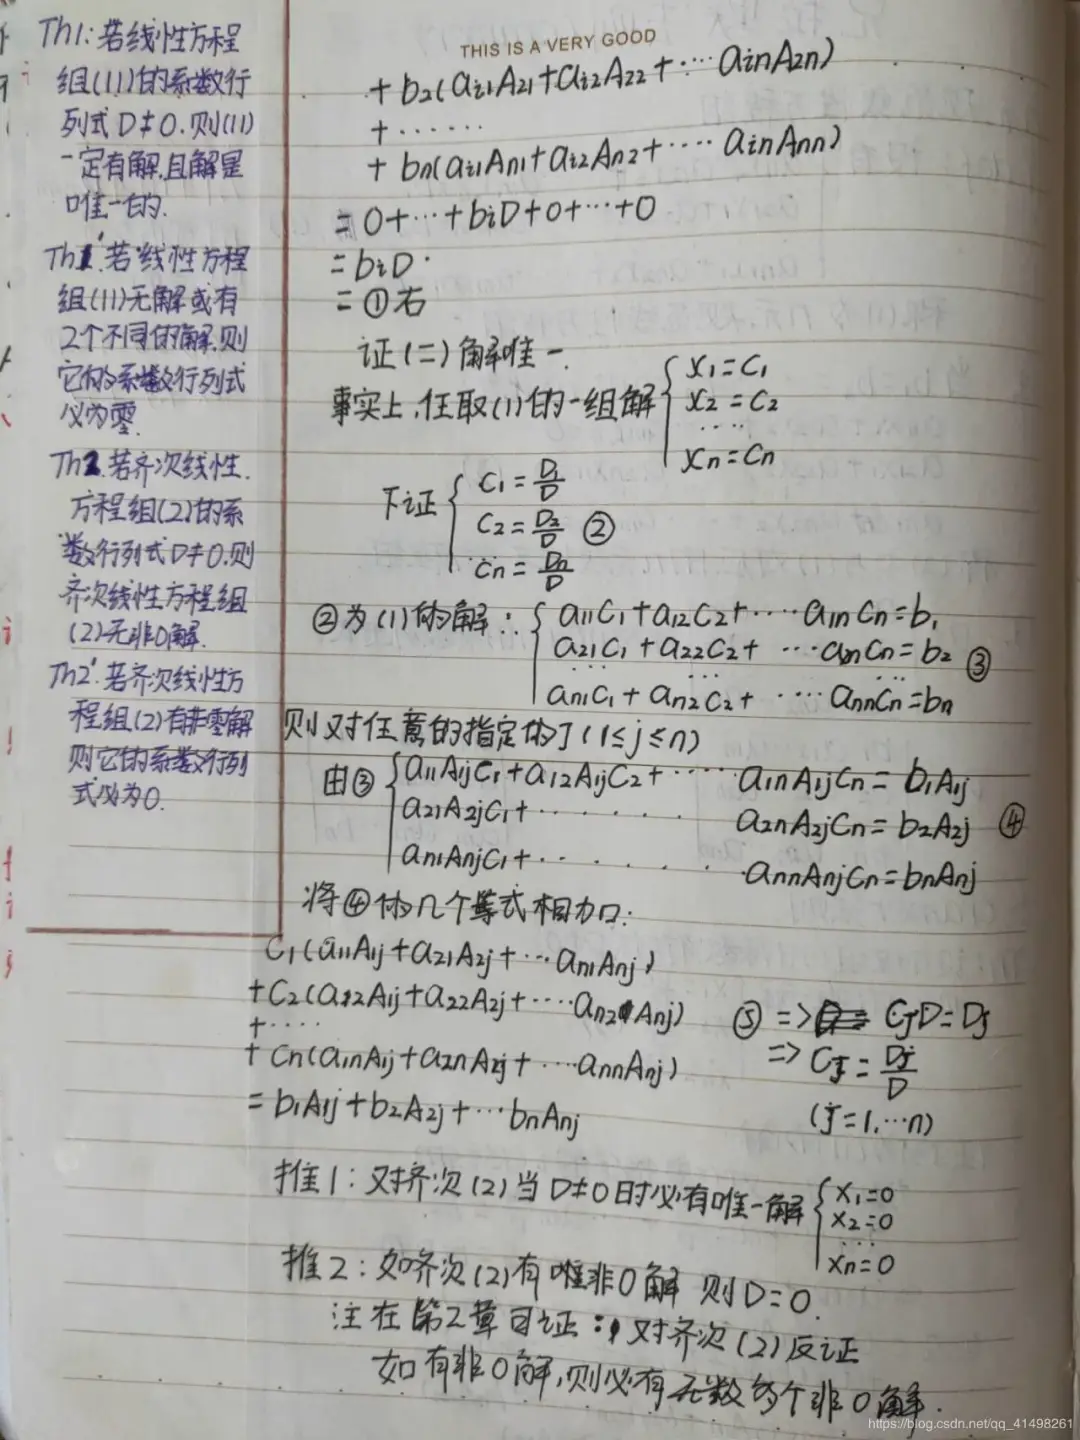 Th1:若线性方程
组(11)的系数行
列式D≠0.则(11)
一定有解,且解是
唯一的.
Th1'.若线性方程
组(11)无解或有
2个不同的解.则
它的系数行列式
必为零.
Th2.若齐次线性.
方程组(2)的系
数行列式D≠0.则
齐次线性方程组
(2)无非0解.
Th2'.若齐次线性方
程组(2)有非零解
则它的系数行列
式必为0.
THIS IS A VERY GOOD
+ b2(ai1A21+ai2A22+····ainA2n)
+······
+ bn(ai1An1+ai2An2+····ainAnn)
= 0+···+biD+0+···+0
= biD.
= ①右
证(二)解唯一.
事实上,任取(1)的一组解 { x1=C1
x2=C2
····
xn=Cn
下证 { C1=D1/D
C2=D2/D ②
Cn=Dn/D
②为(1)的解: { a11C1+a12C2+····a1nCn=b1
a21C1+a22C2+ ···a2nCn=b2 ③
··· ···
an1C1+an2C2+ ····annCn=bn
则对任意的指定的J(1≤j≤n)
由③ { a11A1jC1+a12A1jC2+····· a1nA1jCn=b1A1j
a21A2jC1+······ a2nA2jCn=b2A2j ④
an1AnjC1+······ annAnjCn=bnAnj
将④的几个等式相加:
C1(a11A1j+a21A2j+···an1Anj)
+C2(a12A1j+a22A2j+····an2Anj)
+····
+Cn(a1nA1j+a2nA2j+···annAnj)
=b1A1j+b2A2j+···bnAnj
⑤ => CjD=Dj
=> Cj=Dj/D
(j=1,···n)
推1:对齐次(2)当D≠0时必有唯一解 { x1=0
x2=0
···
xn=0
推2:如齐次(2)有唯非0解 则D=0.
注在第2章可证:对齐次(2)反证
如有非0解,则必有无数多个非0解.
https://blog.csdn.net/qq_41498261